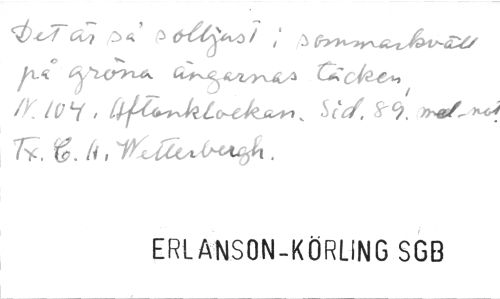 Det är så solljust i sommarkväll
på gröna ängarnas täcken,
N. 104. Aftonklockan. Sid. 89. mel-not.
Tx. C. A. Wetterbergh.
ERLANSON-KÖRLING SGB